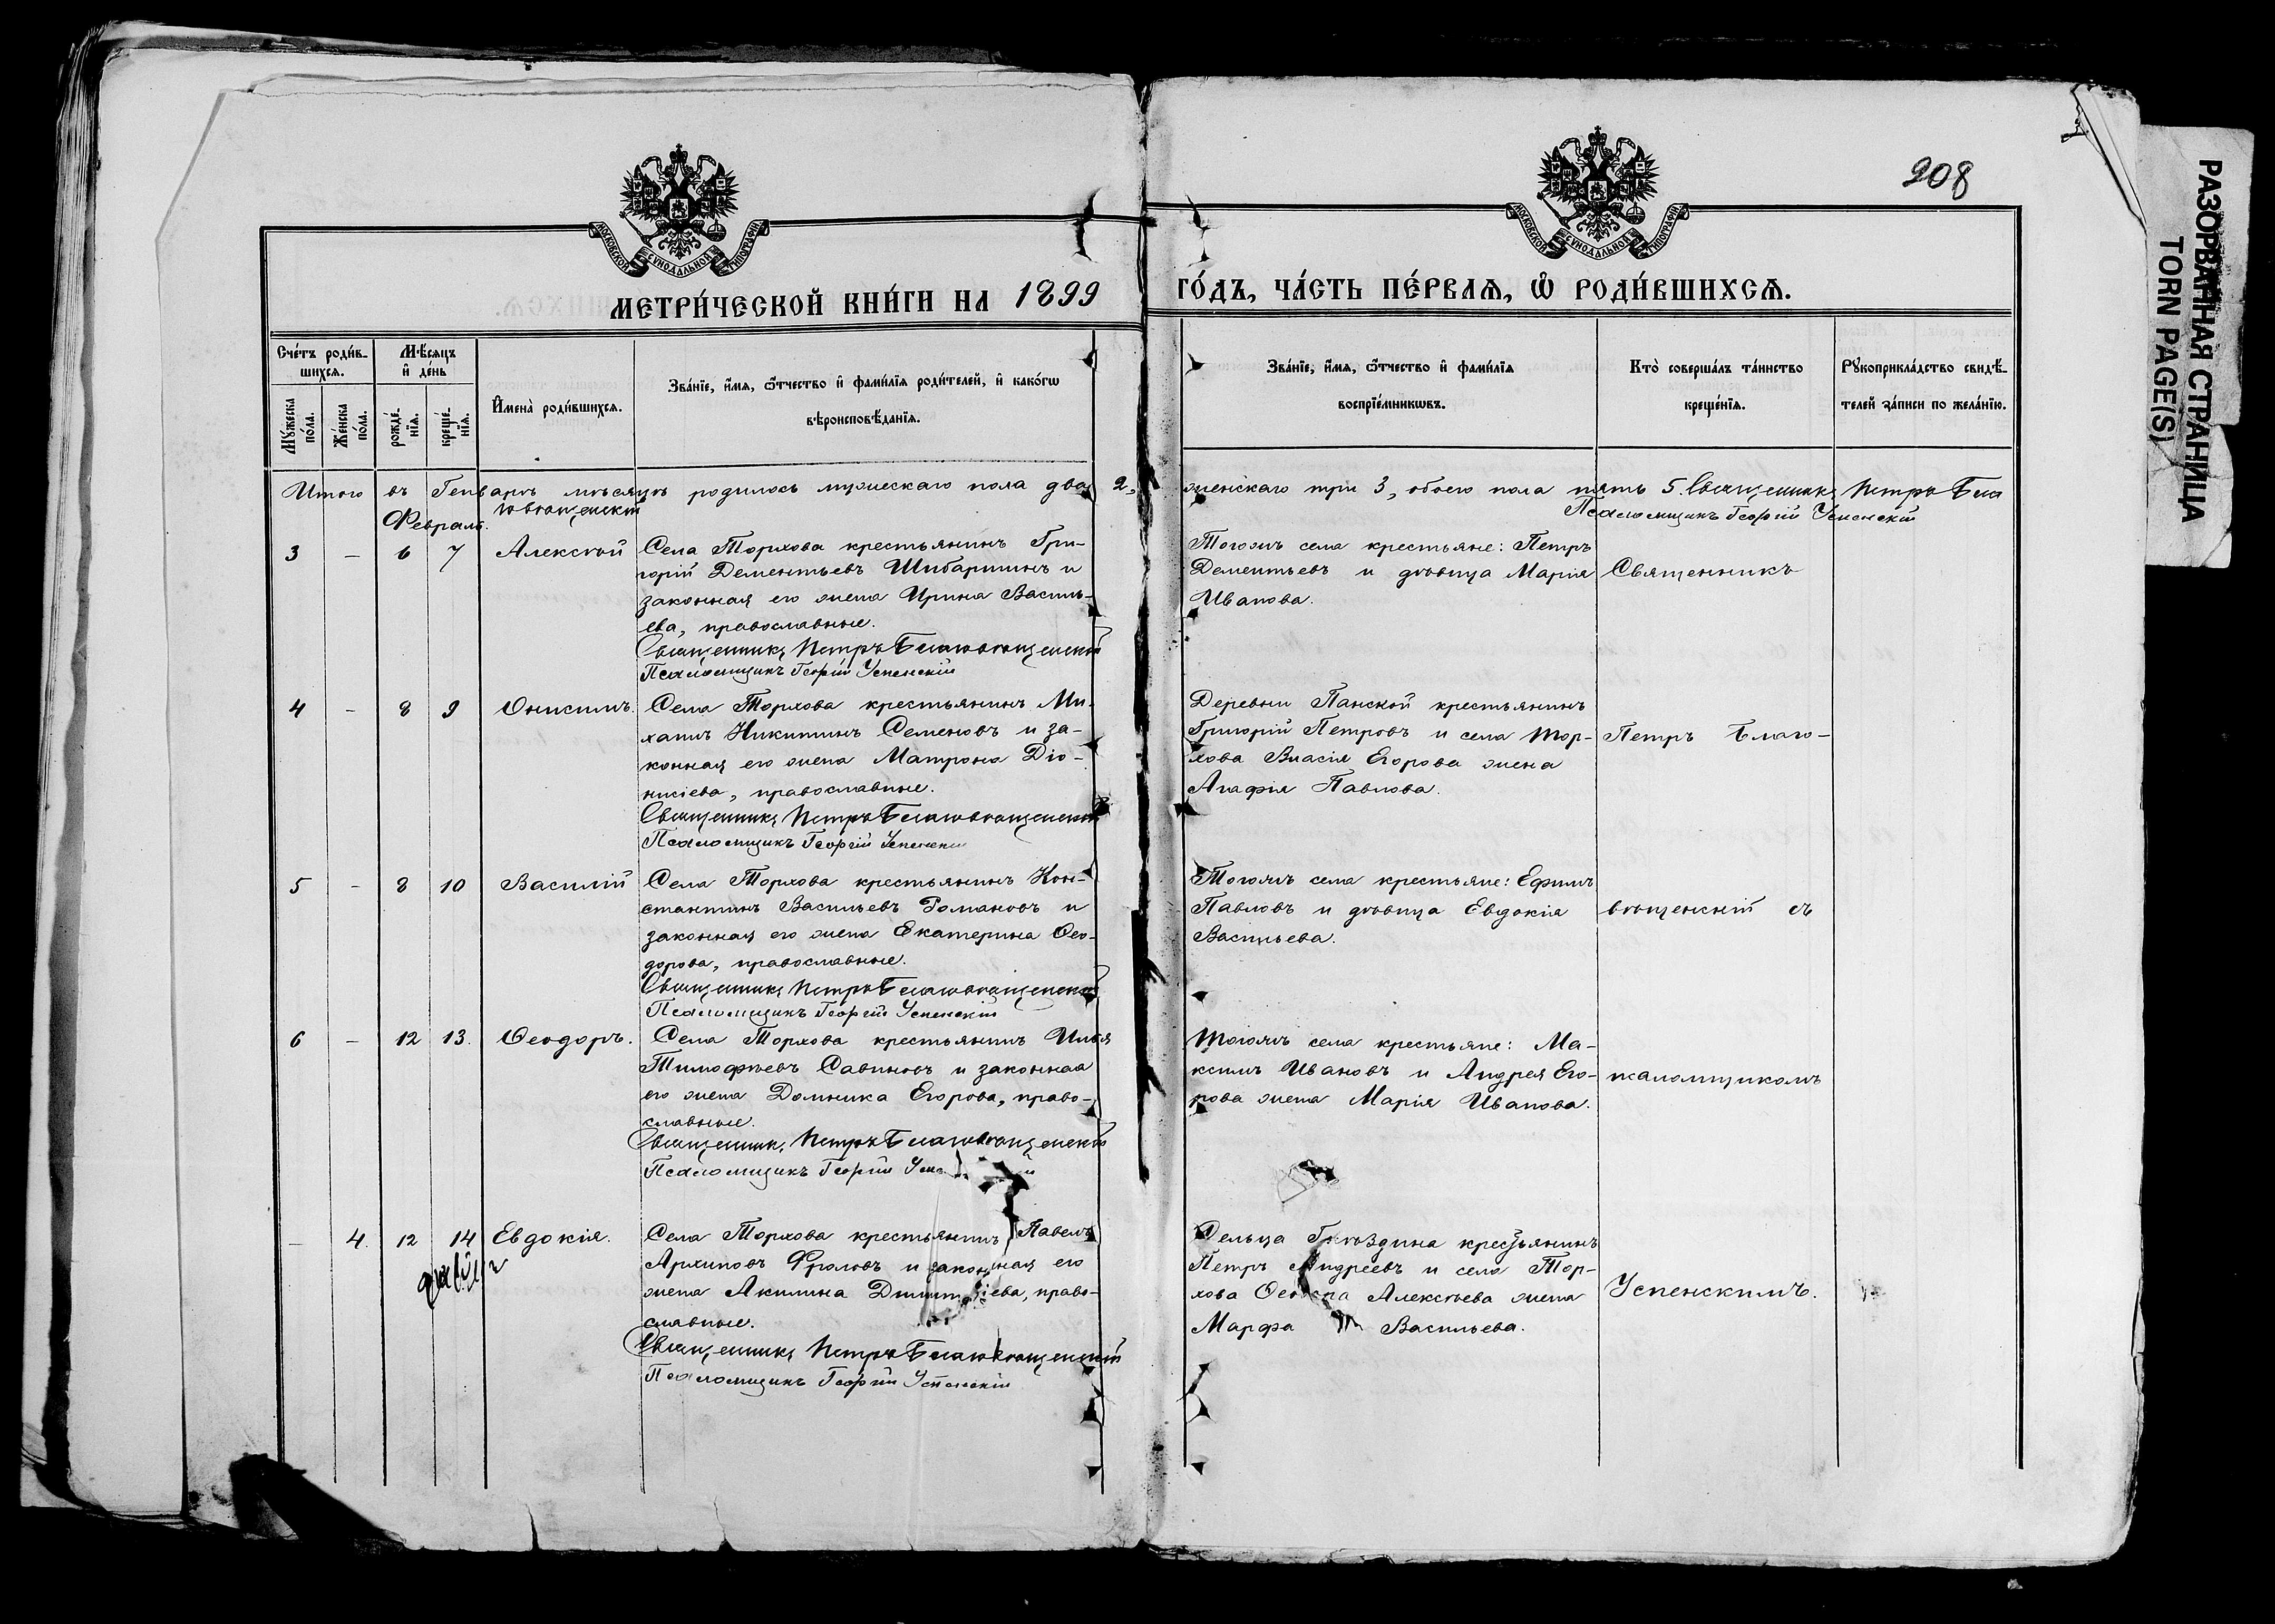 208
РАЗОРВАННАЯ СТРАНИЦА
TORN PAGE(S)
МОСКОВСКОЙ СѴНОДАЛЬНОЙ ТИПОГРАФІИ
МОСКОВСКОЙ СѴНОДАЛЬНОЙ ТИПОГРАФІИ
МЕТРИ́ЧЕСКОЙ КНИ́ГИ НА 1899
ГО́ДЪ, ЧА́СТЬ ПЕ́РВАѦ, Ѽ РОДИ́ВШИХСѦ.
Сче́тъ роди́в-
шихсѧ.
Мꙋ́жеска
по́ла.
Же́нска
по́ла.
Мѣ́сѧцъ
и҆ де́нь
рожде́-
нїѧ.
креще́-
нїѧ.
И҆мена̀ роди́вшихсѧ.
Зва́нїе, и҆́мѧ, ѻ҆́тчество и҆ фами́лїѧ роди́телей, и҆ како́гѡ
вѣроисповѣ́данїѧ.
Зва́нїе, и҆́мѧ, ѻ҆́тчество и҆ фами́лїѧ
воспрїе́мникѡвъ.
Кто̀ соверша́лъ та́инство
креще́нїѧ.
Рꙋкоприкла́дство свидѣ́-
телей за́писи по жела́нїю.
Итого въ Генварѣ мѣсяцѣ родилось мужескаго пола два 2,
женскаго три 3, обоего пола пять 5. Священникъ Петръ Бла
говѣщенскій
Псаломщикъ Георгій Успенскій
Февраль.
3 — 6 7 Алексѣй
Села Торхова крестьянинъ Гри-
горій Дементьевъ Шибаршинъ и
законная его жена Ирина Василь-
ева, православные.
Священникъ Петръ Благовѣщенскій
Псаломщикъ Георгій Успенскій
Тогожъ села крестьяне: Петръ
Дементьевъ и дѣвица Марія
Иванова.
Священникъ
4 — 8 9 Онисимъ.
Села Торхова крестьянинъ Ми-
хаилъ Никитинъ Семеновъ и за-
конная его жена Матрона Діо-
нисіева, православные.
Священникъ Петръ Благовѣщенскій
Псаломщикъ Георгій Успенскій
Деревни Панской крестьянинъ
Григорій Петровъ и села Тор-
хова Власія Егорова жена
Агафія Павлова.
Петръ Благо-
5 — 8 10 Василій
Села Торхова крестьянинъ Кон-
стантинъ Васильевъ Романовъ и
законная его жена Екатерина Ѳео-
дорова, православные.
Священникъ Петръ Благовѣщенскій
Псаломщикъ Георгій Успенскій
Тогожъ села крестьяне: Ефимъ
Павловъ и дѣвица Евдокія
Васильева.
вѣщенскій съ
6 — 12 13. Ѳеодоръ.
Села Торхова крестьянинъ Илья
Тимофѣевъ Савиновъ и законная
его жена Домника Егорова, право-
славные.
Священникъ Петръ Благовѣщенскій
Псаломщикъ Георгій
Тогожъ села крестьяне: Ма-
ксимъ Ивановъ и Андрея Его-
рова жена Марія Иванова.
псаломщикомъ
— 4. 12 14 Евдокія.
Села Торхова крестьянинъ Павелъ
Архиповъ Фроловъ и законная его
жена Акилина Димитріева, право-
славные.
Священникъ Петръ Благовѣщенскій
Псаломщикъ Георгій Успенскій
Сельца Гвоздина крестьянинъ
Петръ Андреевъ и села Тор-
хова Алексѣева жена
Марфа Васильева.
Успенскимъ.